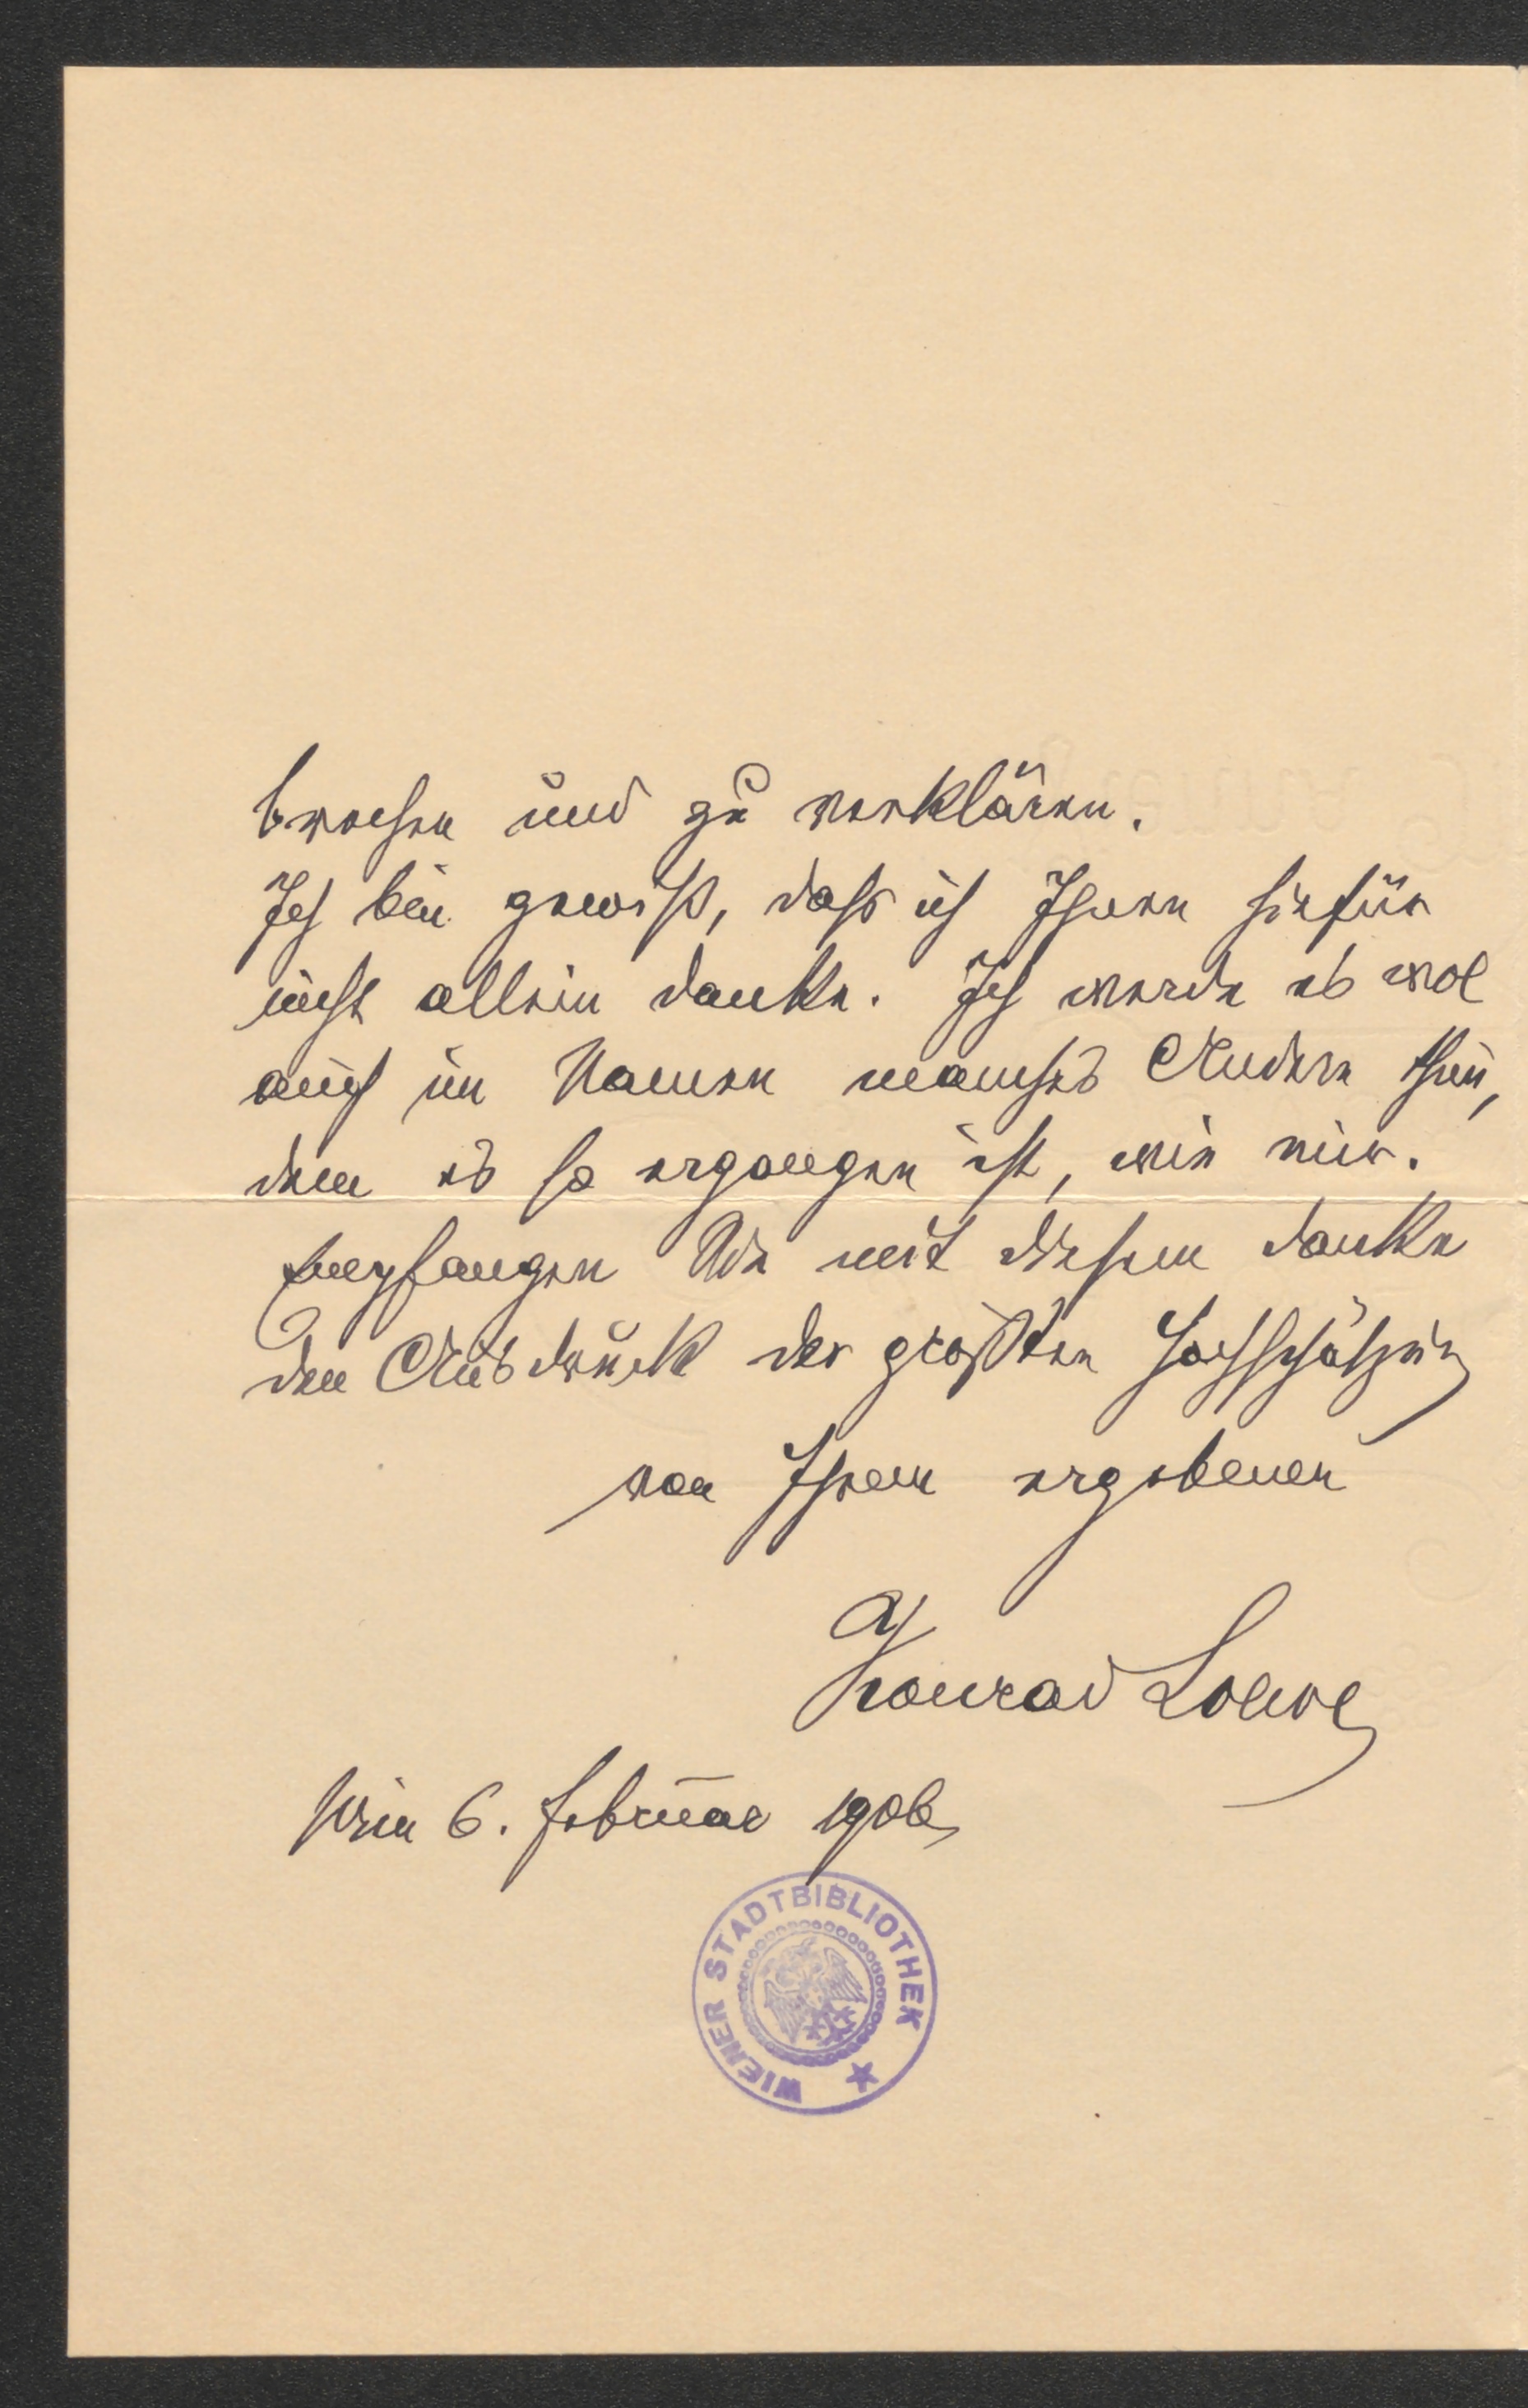 und zu verklären.
Ich bin gewiß, dass ich Ihnen hiefür
nicht allein danke. Ich werde es wol
auch im Namen manches Andern thun,
dem es so ergangen ist, wie mir.
Empfangen Sie mit diesem Danke
den Ausdruck der größten Hochschätzung
von Ihrem ergebenen
Konrad Loewe
Wien 6. Februar 1906
WIENER STADTBIBLIOTHEK